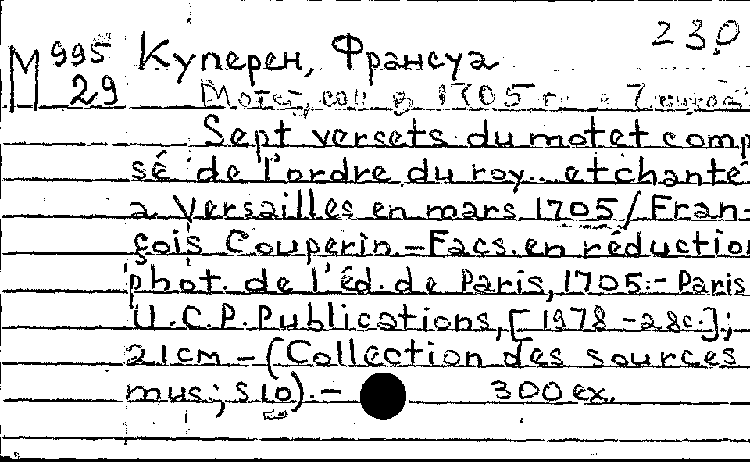 23,0
М 995 29 Куперен, Франсуа
Мотет, 1705
Sept versets du motet comp
sé de l'ordre du roy... et chanté
a Versailles en mars 1705 / Fran-
çois Couperin. - Facs. en réduction
phot. de l'éd. de Paris, 1705. - Paris
U.C.P. Publications, [1978 - 28c.];
21cm - (Collection des sources
mus; S10). - 300 ex.